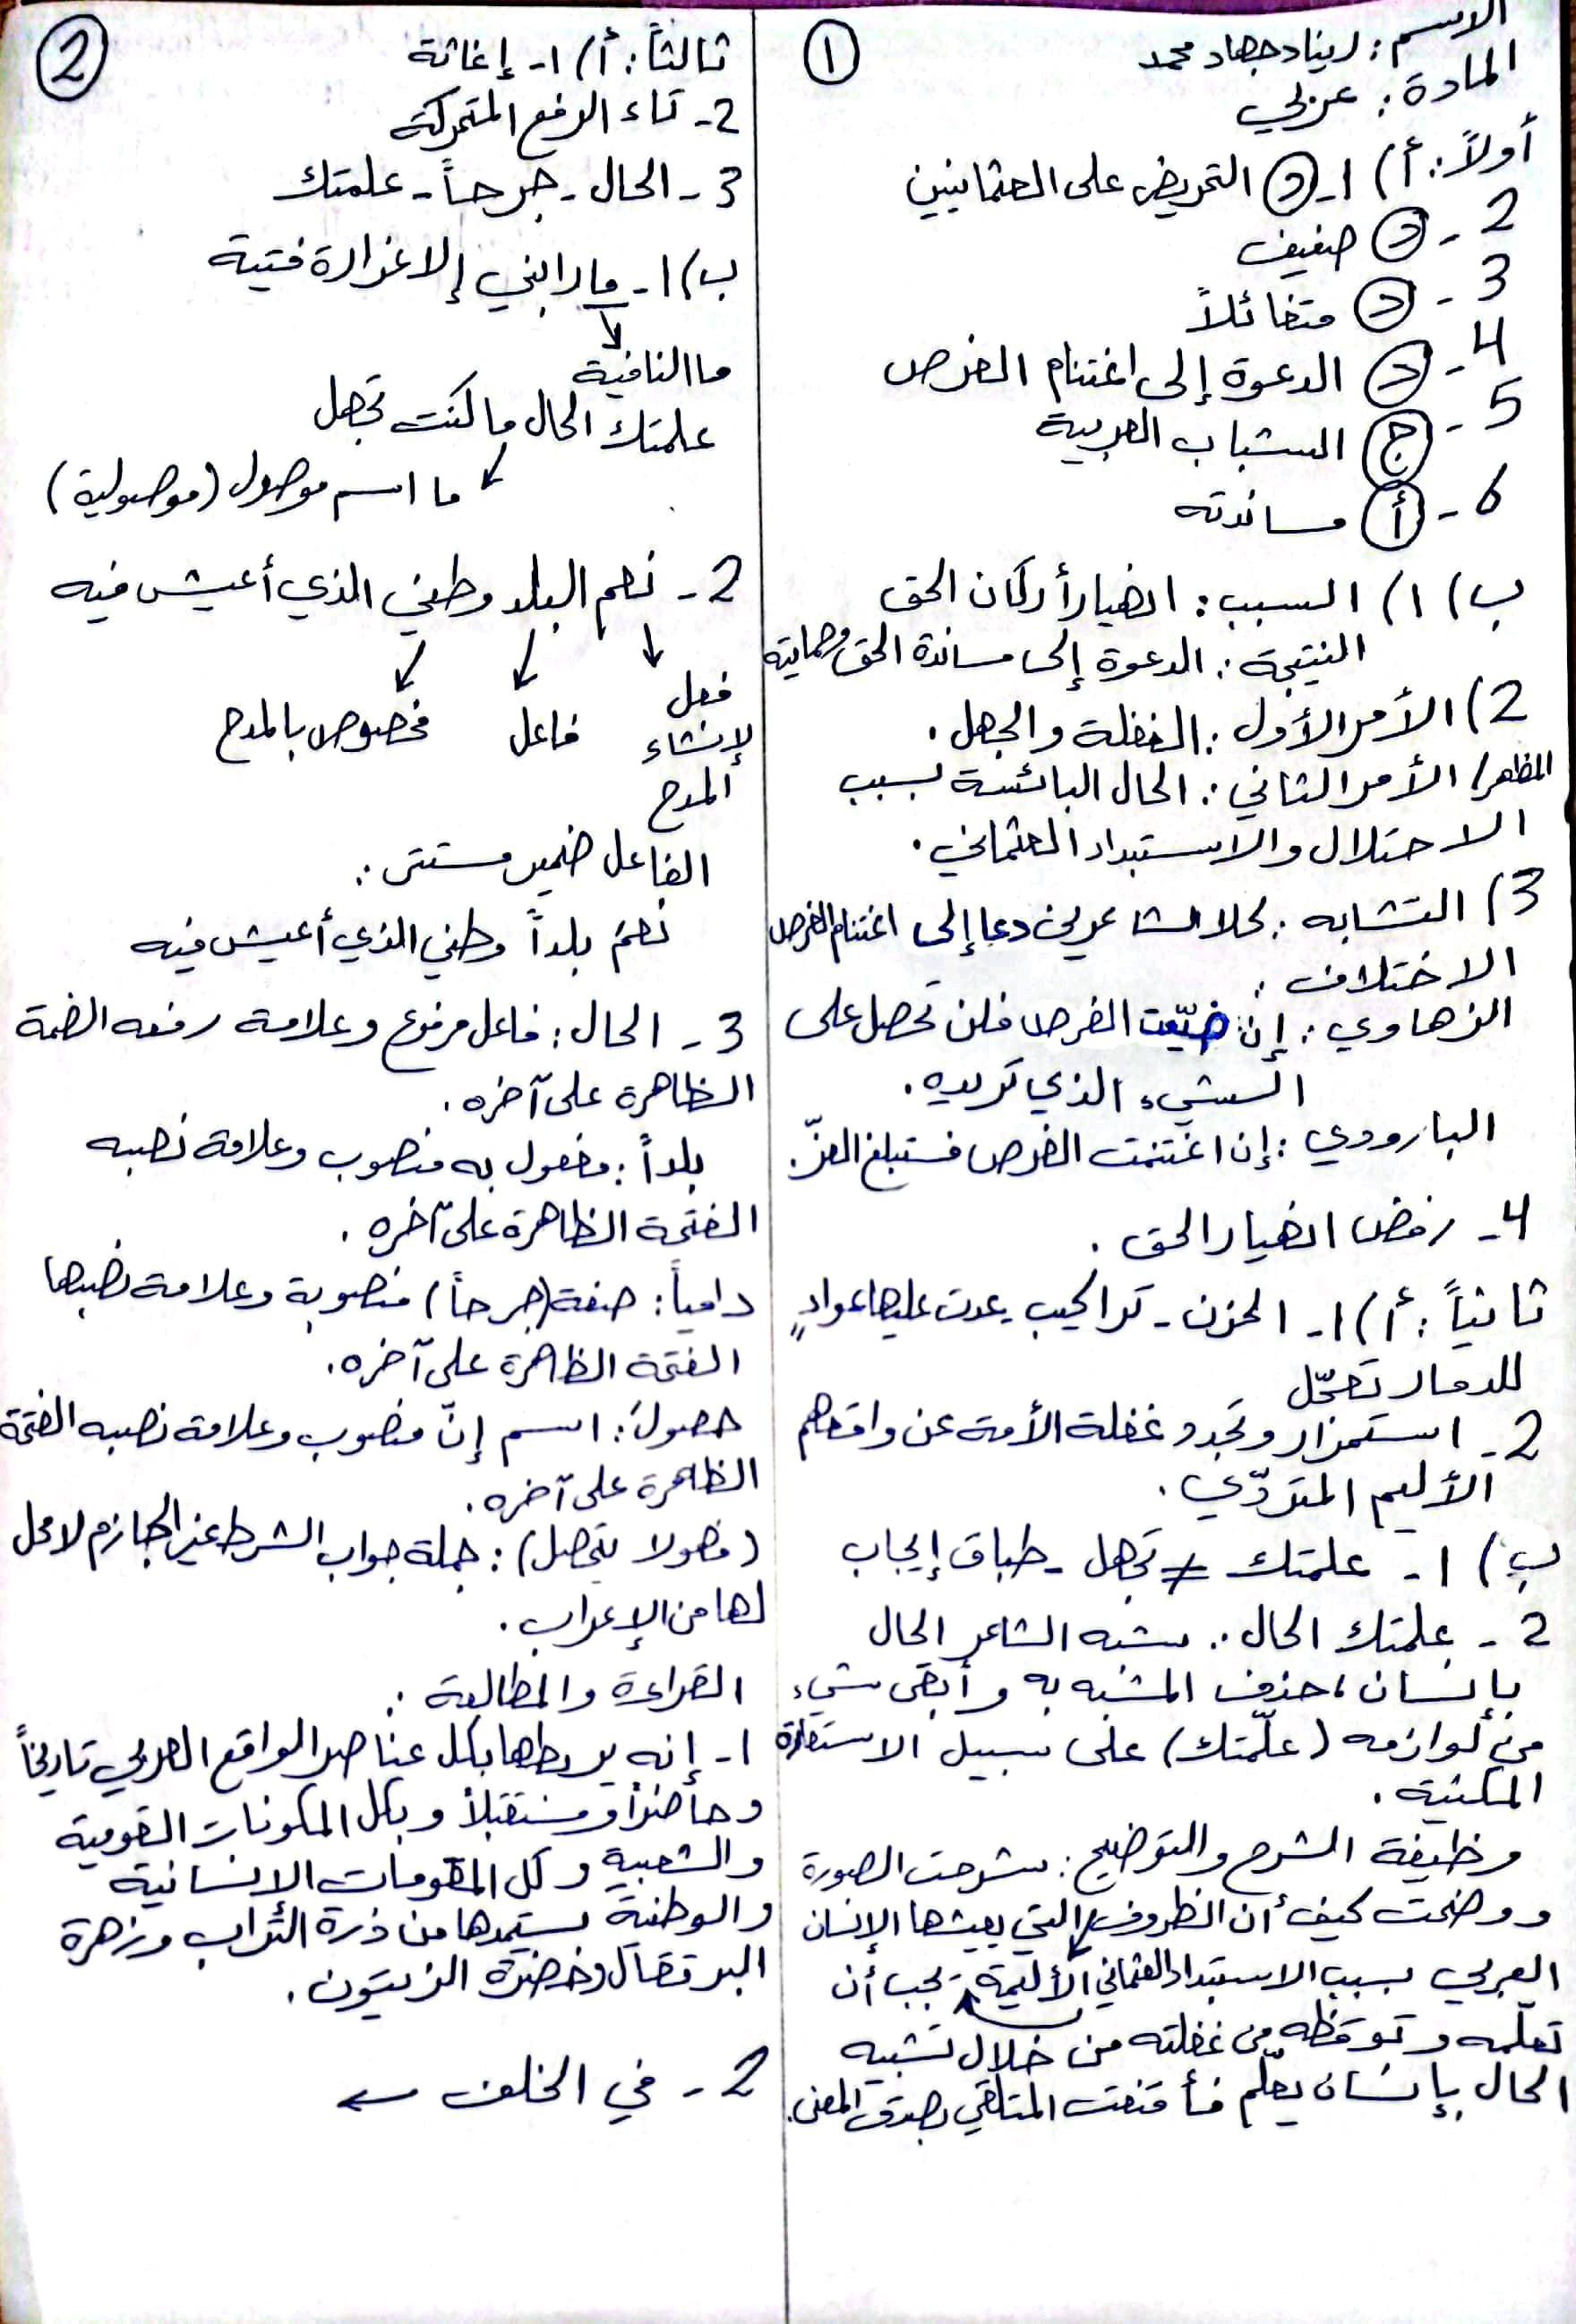 الاسم: ريناد جهاد محمد
المادة: عربي
①
أولاً: أ) 1- د التحريض على العثمانيين
2- د ضعيف
3- د متفائلاً
4- د الدعوة إلى اغتنام الفرص
5- ج الشباب العربية
6- أ مساندته
ب) 1) السبب: انهيار أركان الحق
النتيجة: الدعوة إلى مساندة الحق وحمايته
2) الأمر الأول: الغفلة والجهل.
المظهر/ الأمر الثاني: الحال البائسة بسبب
الاحتلال والاستبداد العثماني.
3) التشابه: كلا الشاعرين دعا إلى اغتنام الفرص
الاختلاف:
الزهاوي: إن ضيّعت الفرص فلن تحصل على
الشيء الذي تريده.
البارودي: إن اغتنمت الفرص فستبلغ العزّ.
4- رفض انهيار الحق.
ثانياً: أ) 1- الحزن - تراكيب - عدت عليها عوادٍ
للدمار تعجّل
2- استمرار وتجدد غفلة الأمة عن واقعهم
الأليم المتردّي.
ب) 1- علمتك ≠ تجهل - طباق إيجاب
2- علمتك الحال: شبه الشاعر الحال
بإنسان، حذف المشبه به وأبقى شيء
من لوازمه (علّمتك) على سبيل الاستعارة
المكنية.
وظيفة الشرح والتوضيح: شرحت الصورة
ووضحت كيف أن الظروف التي يعيشها الإنسان
العربي بسبب الاستبداد العثماني الأليمة يجب أن
تعلّمه وتوقظه من غفلته من خلال تشبيه
الحال بإنسان يعلّم فأقنعت المتلقي بصدق المعنى.
②
ثالثاً: أ) 1- إغاثة
2- تاء الرفع المتحركة
3- الحال - جرحاً - علمتك
ب) 1- ما رابني إلا غرارة فتية
ما النافية
علمتك الحال ما كنت تجهل
ما اسم موصول (موصولية)
2- نعم البلد وطني الذي أعيش فيه
فعل لإنشاء المدح
فاعل
مخصوص بالمدح
الفاعل ضمير مستتر:
نعمَ بلداً وطني الذي أعيش فيه
3- الحال: فاعل مرفوع وعلامة رفعه الضمة
الظاهرة على آخره.
بلداً: مفعول به منصوب وعلامة نصبه
الفتحة الظاهرة على آخره.
دامياً: صفة (جرحاً) منصوبة وعلامة نصبها
الفتحة الظاهرة على آخره.
حصولَ: اسم إنّ منصوب وعلامة نصبه الفتحة
الظاهرة على آخره.
(فهو لا يتحصل): جملة جواب الشرط غير الجازم لا محل
لها من الإعراب.
القراءة والمطالعة:
1- إنه يربطها بكل عناصر الواقع العربي تاريخاً
وحاضراً ومستقبلاً وبكل المكونات القومية
والشعبية وكل المقومات الإنسانية
والوطنية يستمدها من ذرة التراب وزهرة
البرتقال وخضرة الزيتون.
2- في الخلف ←